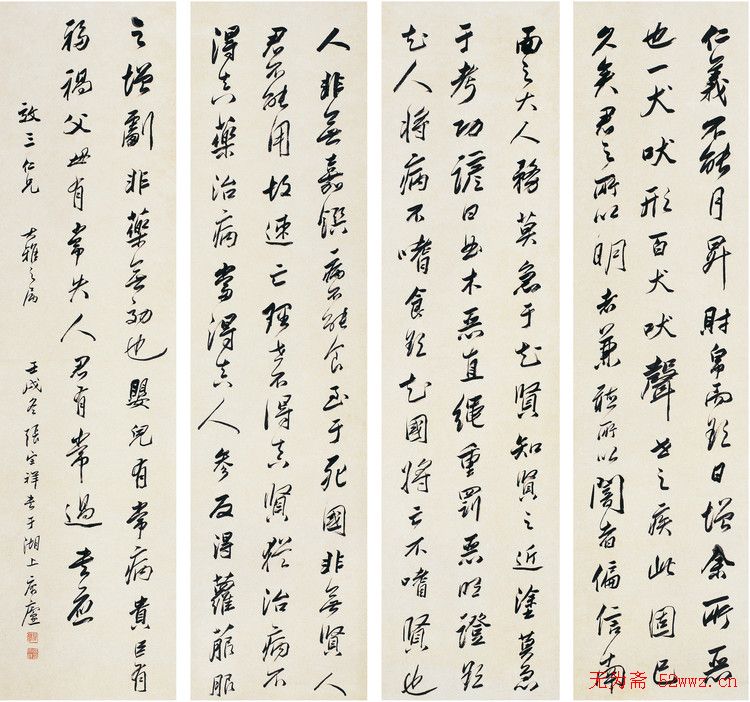 仁義不能月昇財帛而欲日增余所惡
也一犬吠形百犬吠聲世之疾此固已
久矣君之所以明者兼聽所以闇者偏信南
面之大人務莫急于知賢知賢之近塗莫急
于考功諺曰曲木惡直繩重罰惡明證欲
知人將病不嗜食欲知國將亡不嗜賢也
人非無嘉饌病不能食至于死國非無賢人
君不能用故速亡理世不得真賢猶治病不
得真藥治病當得真人參反得蘿菔服
之增劇非藥無功也嬰兒有常病貴臣有
福禍父母有常失人君有常過書應
三仁兄大雅之屬 壬戌冬張宗祥書于湖上寓廬
无为斋 52wwz.cn